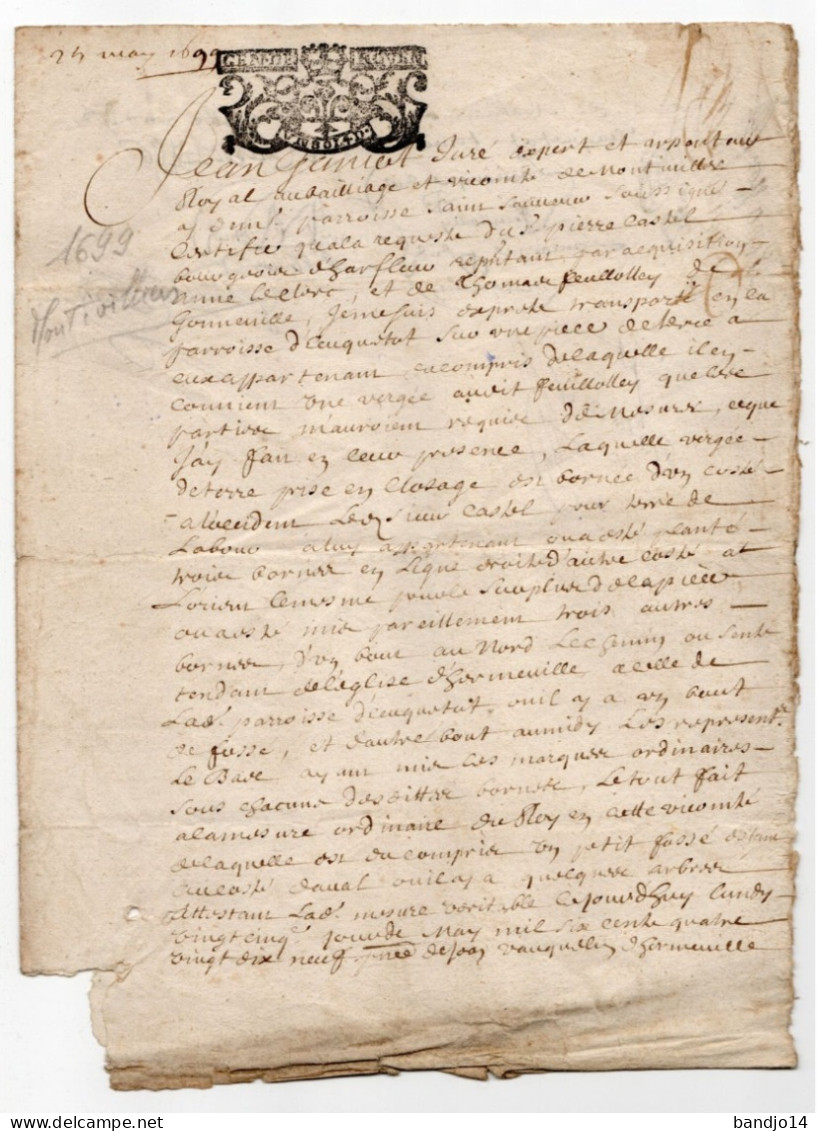 25 may 1699
GEN. DE ROVEN
Jean Juré expert et arpenteur
Royal au bailliage et vicomté de Montiviller
parroisse Saint Sauveur Soussigné
Certifie qua la requeste du Sr. pierre Castel
bourgeois d'harfleur reptant par acquisition
anne Leclerc, et de Thomas feuillolley de
Gonneville, Jemesuis exprete transporté en la
parroisse d'euquetot sur une piece de terre a
eux appartenant au compris delaquelle il en
Convient une vergee audit feuillolley que lesd
parties m'auroient requise de Mesurer, ceque
J'ay fait en leur presence, Laquelle vergée
deterre prise en Closage est bornée d'un costé
aloccident Led Sieur Castel pour terre de
Labour a luy appartenant ou a esté planté
trois bornes en Ligne droite d'autre Costé at
L'orient lemesme pour le Surplus delapièce
ou aesté mis pareillement trois autres
bornes, d'un bout au Nord Le Chemin ou Sente
tendant de L'eglise d'hermeville a celle de
Lade. parroisse d'euquetot, ou il y a un bout
de fossé, et d'autre bout aumidy Les represent.
Le Bas ayant mis les marques ordinaires
sous chacune desdittes bornes, Le tout fait
alamesure ordinaire du Roy en cette vicomté
delaquelle est du compris un petit fossé estant
du costé daval ou il y a quelques arbres
Attestant Lade. mesure veritable cejourdhuy lundy
vingt cinqe. jour de May mil six cents quatre
vingt dix neuf pnce de Jean vauquelin d'hermeville
1699
Montivilliers
bandjo14